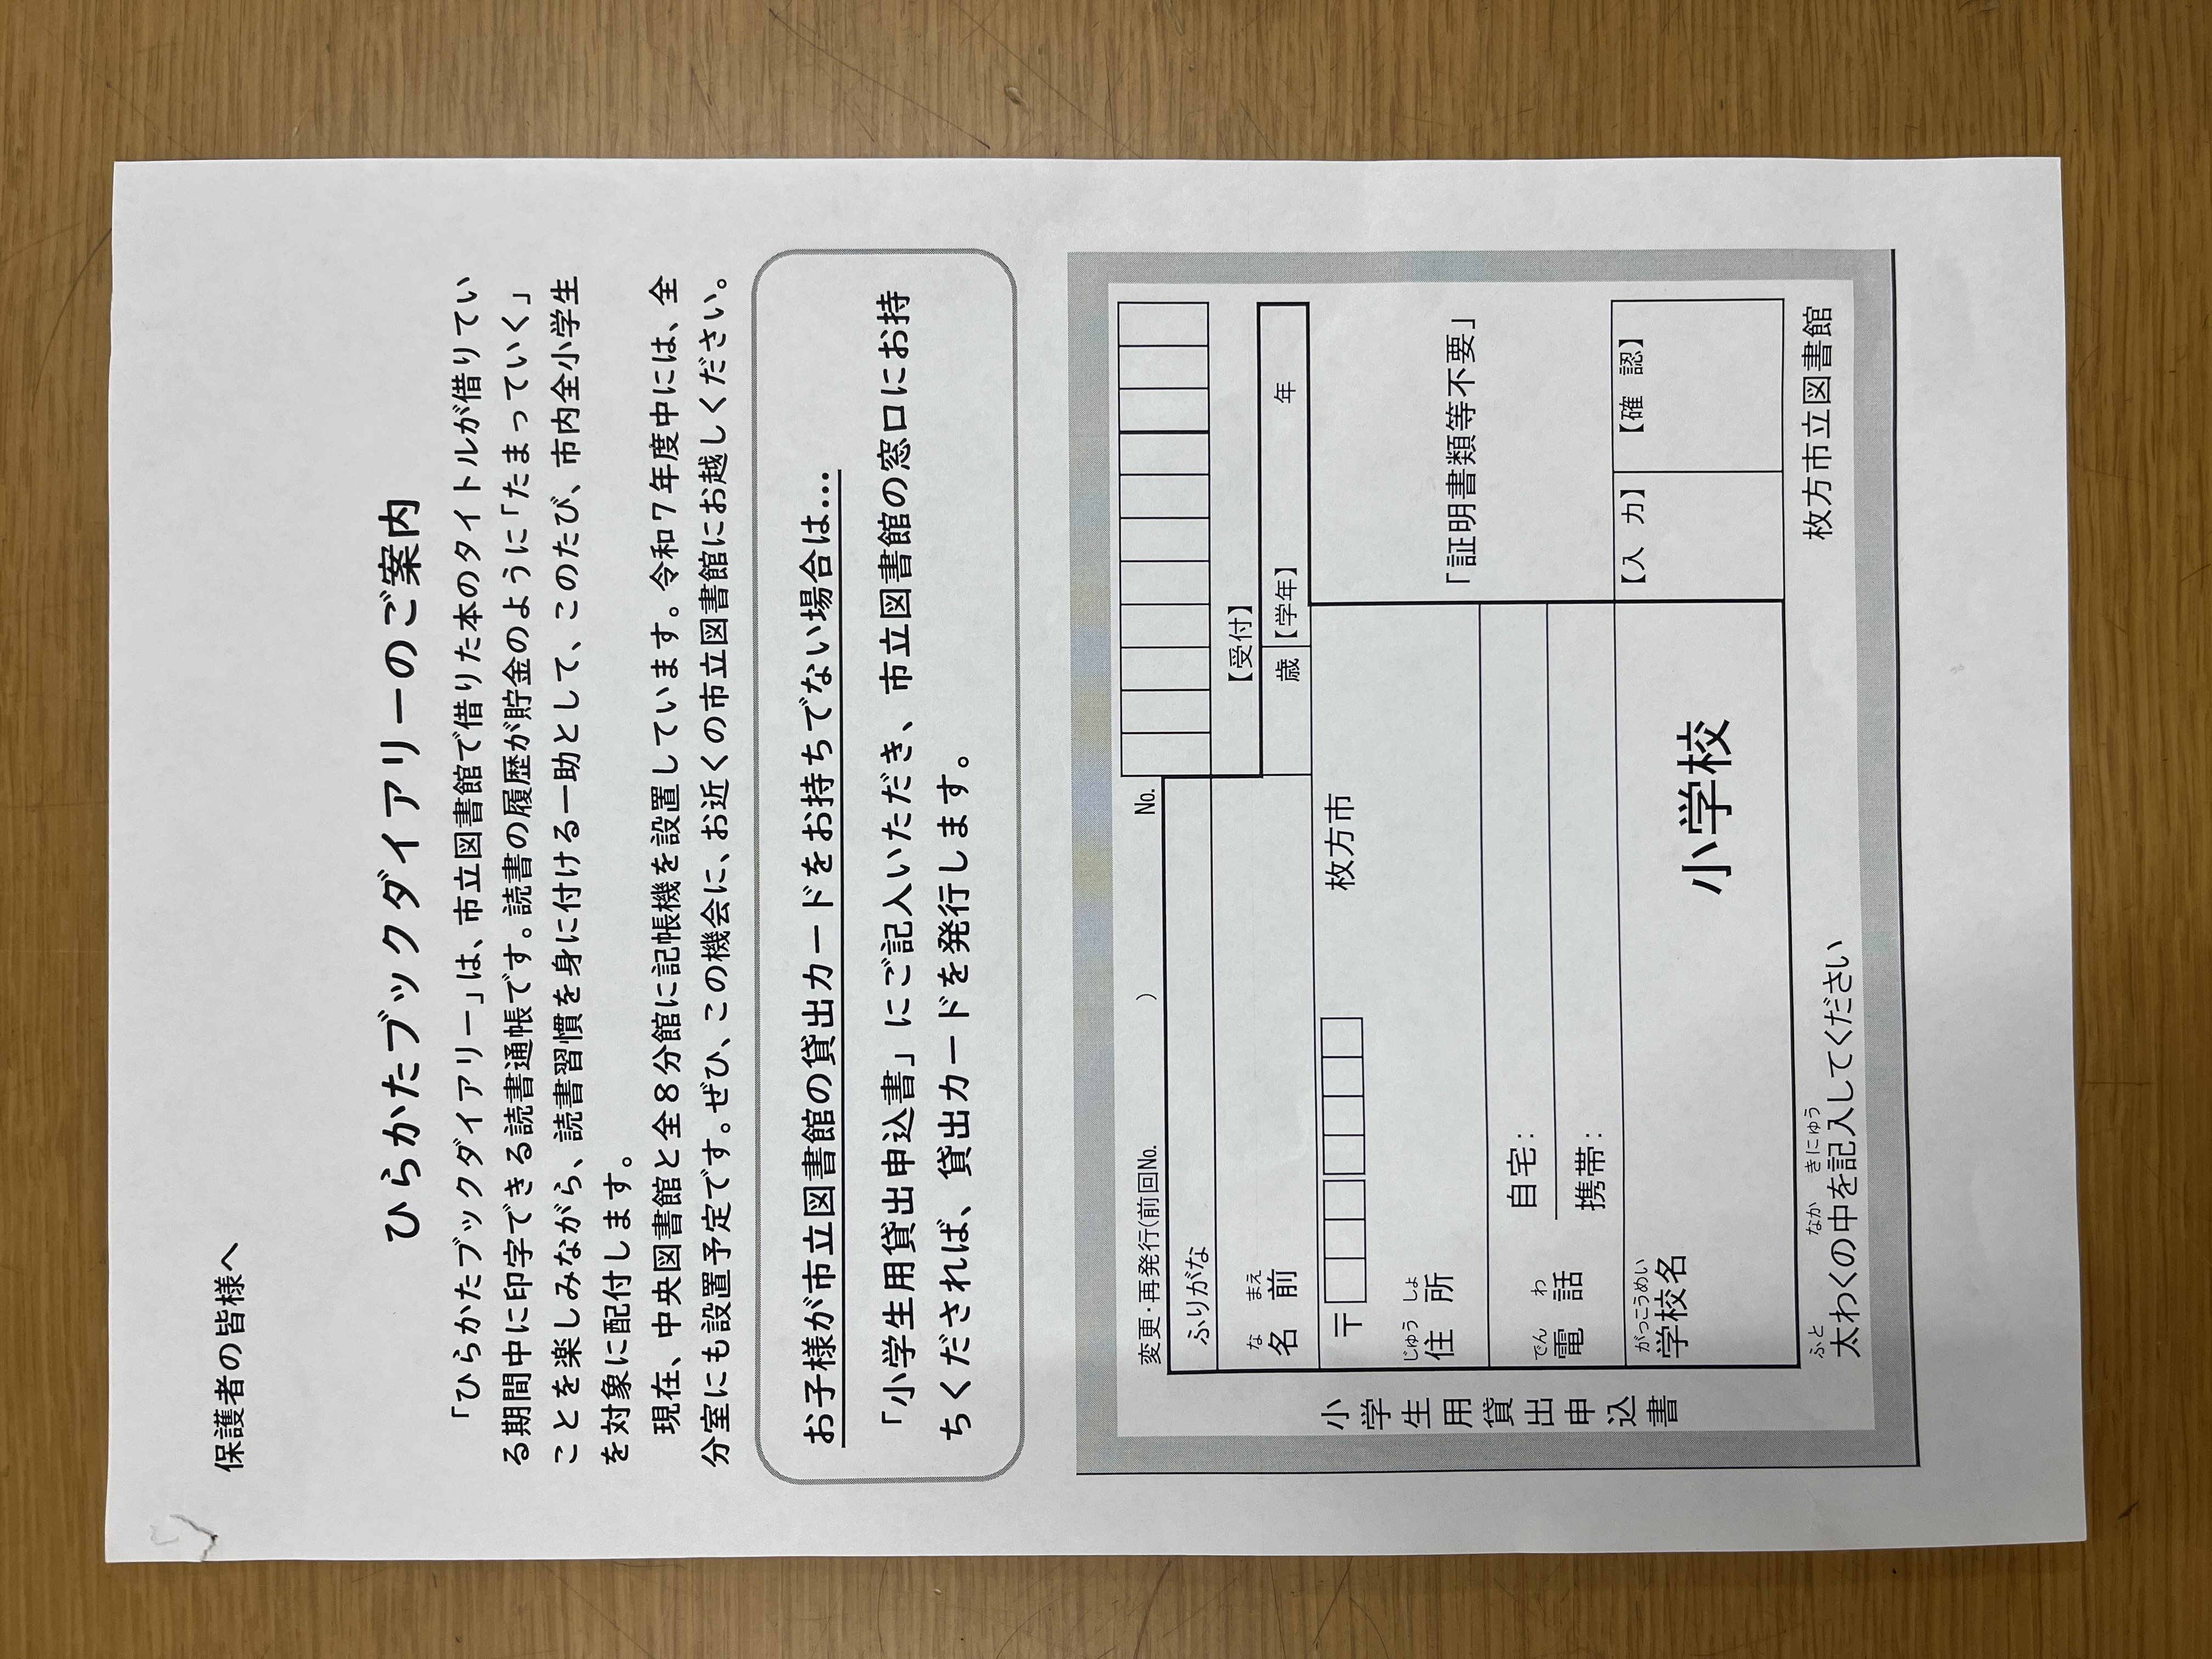 保護者の皆様へ
ひらかたブックダイアリーのご案内
「ひらかたブックダイアリー」は、市立図書館で借りた本のタイトルが借りてい
る期間中に印字できる読書通帳です。読書の履歴が貯金のように「たまっていく」
ことを楽しみながら、読書習慣を身に付ける一助として、このたび、市内全小学生
を対象に配付します。
現在、中央図書館と全8分館に記帳機を設置しています。令和7年度中には、全
分室にも設置予定です。ぜひ、この機会に、お近くの市立図書館にお越しください。
お子様が市立図書館の貸出カードをお持ちでない場合は…
「小学生用貸出申込書」にご記入いただき、市立図書館の窓口にお持
ちくだされば、貸出カードを発行します。
小学生用貸出申込書
変更・再発行(前回No. ) No.
ふりがな
【受付】
な まえ
名 前
歳 【学年】 年
〒 枚方市
じゅう しょ
住 所
「証明書類等不要」
でん わ
電 話
自宅:
携帯:
【入 力】 【確 認】
がっこうめい
学校名
小学校
ふと なか きにゅう
太わくの中を記入してください
枚方市立図書館